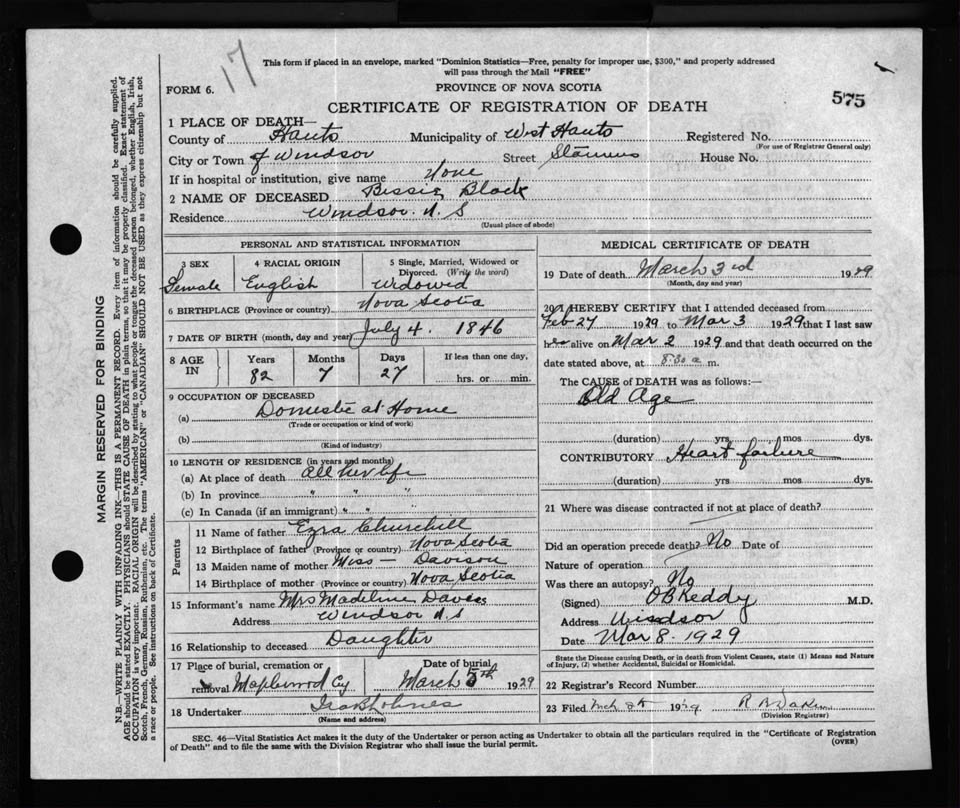 17
This form if placed in an envelope, marked "Dominion Statistics—Free, penalty for improper use, $300," and properly addressed
will pass through the Mail "FREE"
FORM 6.
PROVINCE OF NOVA SCOTIA
575
CERTIFICATE OF REGISTRATION OF DEATH
1 PLACE OF DEATH—
County of Hants Municipality of West Hants Registered No.
(For use of Registrar General only)
City or Town of Windsor Street House No.
If in hospital or institution, give name None
2 NAME OF DECEASED Bessie Black
Residence Windsor. N. S
(Usual place of abode)
PERSONAL AND STATISTICAL INFORMATION
3 SEX Female
4 RACIAL ORIGIN English
5 Single, Married, Widowed or
Divorced. (Write the word)
Widowed
6 BIRTHPLACE (Province or country) Nova Scotia
7 DATE OF BIRTH (month, day and year) July 4. 1846
8 AGE IN Years 82 Months 7 Days 27 If less than one day,
hrs. or min.
9 OCCUPATION OF DECEASED
(a) Domestic at Home
(Trade or occupation or kind of work)
(b)
(Kind of industry)
10 LENGTH OF RESIDENCE (in years and months)
(a) At place of death all her life
(b) In province " " "
(c) In Canada (if an immigrant) " " "
Parents
11 Name of father Ezra Churchill
12 Birthplace of father (Province or country) Nova Scotia
13 Maiden name of mother Miss — Davison
14 Birthplace of mother (Province or country) Nova Scotia
15 Informant's name Mrs Madeline Davies
Address Windsor N. S
16 Relationship to deceased Daughter
17 Place of burial, cremation or
removal Maplewood Cy
Date of burial
March 5th 1929
18 Undertaker
(Name and address)
MEDICAL CERTIFICATE OF DEATH
19 Date of death March 3rd 1929
(Month, day and year)
20 I HEREBY CERTIFY that I attended deceased from
Feb 27 1929 to Mar 3 1929 that I last saw
her alive on Mar 2 1929 and that death occurred on the
date stated above, at 8.30 a m.
The CAUSE of DEATH was as follows:—
Old Age
(duration) yrs mos dys.
CONTRIBUTORY Heart failure
(duration) yrs mos dys.
21 Where was disease contracted if not at place of death?
Did an operation precede death? No Date of
Nature of operation
Was there an autopsy? No
(Signed) O B Keddy M.D.
Address Windsor
Date Mar 8. 1929
State the Disease causing Death, or in death from Violent Causes, state (1) Means and Nature
of Injury, (2) whether Accidental, Suicidal or Homicidal.
22 Registrar's Record Number
23 Filed Mch 8th 1929
(Division Registrar)
SEC. 46—Vital Statistics Act makes it the duty of the Undertaker or person acting as Undertaker to obtain all the particulars required in the "Certificate of Registration
of Death" and to file the same with the Division Registrar who shall issue the burial permit.
(OVER)
MARGIN RESERVED FOR BINDING
N.B.—WRITE PLAINLY WITH UNFADING INK—THIS IS A PERMANENT RECORD. Every item of information should be carefully supplied.
AGE should be stated EXACTLY. PHYSICIANS should STATE CAUSE OF DEATH in plain terms, so that it may be properly classified. Exact statement of
OCCUPATION is very important. RACIAL ORIGIN will be described by stating to what people or tongue the deceased person belonged, whether English, Irish,
Scotch, French, German, Russian, Ruthenian, etc. The terms "AMERICAN" or "CANADIAN" SHOULD NOT BE USED as they express citizenship but not
a race or people. See instructions on back of Certificate.